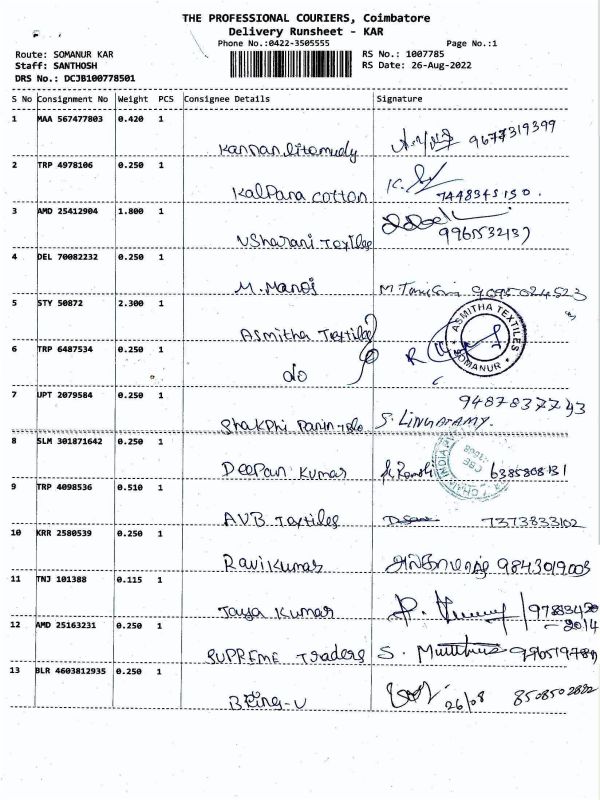 THE PROFESSIONAL COURIERS, Coimbatore
Delivery Runsheet - KAR
Phone No.:0422-3505555 Page No.:1
Route: SOMANUR KAR RS No.: 1007785
Staff: SANTHOSH RS Date: 26-Aug-2022
DRS No.: DCJB100778501
S No Consignment No Weight PCS Consignee Details Signature
1 MAA 567477803 0.420 1
9677319399
2 TRP 4978106 0.250 1
Kalpana cotton 7448345130.
3 AMD 25412904 1.800 1
Usharani Textiles 9965532137
4 DEL 70082232 0.250 1
M. Manoj 9095024523
5 STY 50872 2.300 1
Asmitha Textiles ASMITHA TEXTILES SOMANUR
6 TRP 6487534 0.250 1
7 UPT 2079584 0.250 1
9487837743
8 SLM 301871642 0.250 1
Deepan Kumar 6385808131
9 TRP 4098536 0.510 1
AVB Textiles 7373833102
10 KRR 2580539 0.250 1
Ravikumar 9843019003
11 TNJ 101388 0.115 1
Jaya Kumar
12 AMD 25163231 0.250 1
SUPREME Traders S.
13 BLR 4603812935 0.250 1
26/08 8508502882